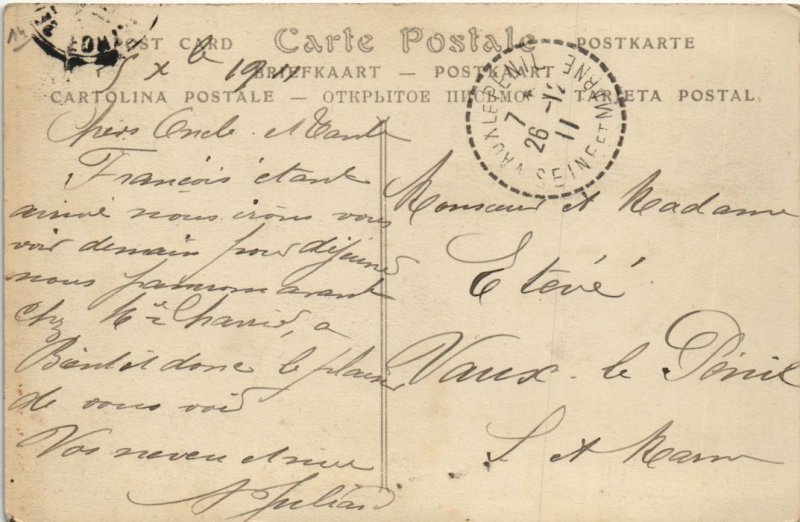 POST CARD Carte Postale POSTKARTE
BRIEFKAART — POSTKAART
CARTOLINA POSTALE — ОТКРЫТОЕ ПИСЬМО — TARJETA POSTAL
5 Xbre 1911
Chers Oncle et Tante
François étant
arrivé nous irons vous
voir demain pour déjeuner
nous passerons avant
chez
Bientôt donc le plaisir
de vous voir
Vos neveu et nièce
VAUX-LE-PÉNIL
7 *
26 -12
11
SEINE ET MARNE
Monsieur et Madame
Etévé
Vaux-le Pénil
S et Marne